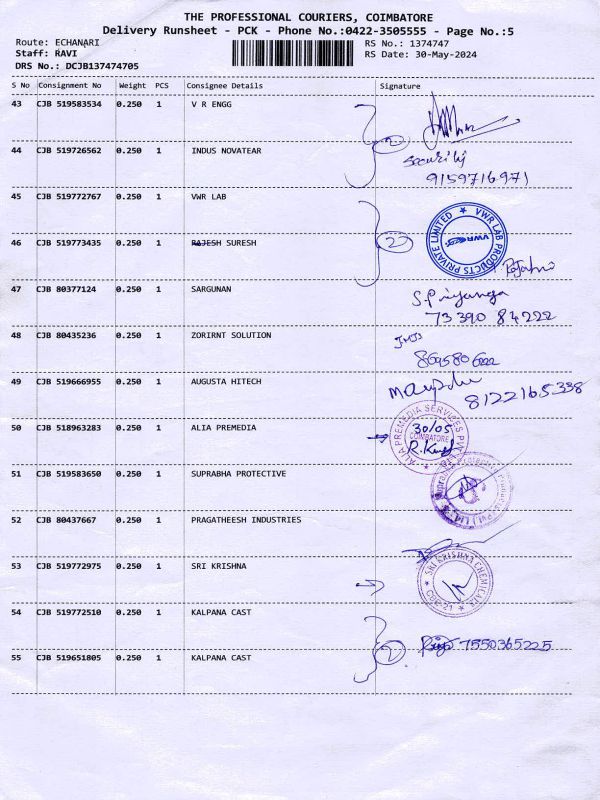 THE PROFESSIONAL COURIERS, COIMBATORE
Delivery Runsheet - PCK - Phone No.:0422-3505555 - Page No.:5
Route: ECHANARI RS No.: 1374747
Staff: RAVI RS Date: 30-May-2024
DRS No.: DCJB137474705
S No Consignment No Weight PCS Consignee Details Signature
43 CJB 519583534 0.250 1 V R ENGG
2
44 CJB 519726562 0.250 1 INDUS NOVATEAR security
9159716971
45 CJB 519772767 0.250 1 VWR LAB
VWR LAB PRODUCTS PRIVATE LIMITED
46 CJB 519773435 0.250 1 RAJESH SURESH 2
47 CJB 80377124 0.250 1 SARGUNAN S.Priyanga
73390 84222
48 CJB 80435236 0.250 1 ZORIRNT SOLUTION
49 CJB 519666955 0.250 1 AUGUSTA HITECH 8122165338
50 CJB 518963283 0.250 1 ALIA PREMEDIA
ALIA PREMEDIA SERVICES PVT LTD
30/05
COIMBATORE
51 CJB 519583650 0.250 1 SUPRABHA PROTECTIVE
Suprabha Protective Products (Pvt) Ltd
52 CJB 80437667 0.250 1 PRAGATHEESH INDUSTRIES
53 CJB 519772975 0.250 1 SRI KRISHNA
SRI KRISHNA CHEMICALS
CBE-21
54 CJB 519772510 0.250 1 KALPANA CAST
2 7550365225
55 CJB 519651805 0.250 1 KALPANA CAST